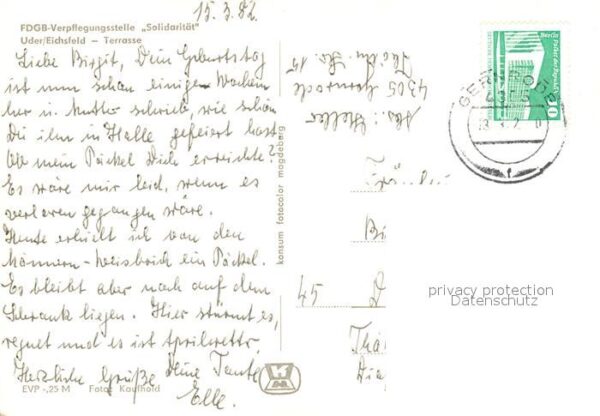 15.3.82
FDGB-Verpflegungsstelle „Solidarität"
Uder/Eichsfeld — Terrasse
Liebe Birgit, Dein Geburtstag
ist nun schon einige Wochen
her u. Mutter schrieb, wie schön
Du ihn in Halle gefeiert hast
Ob mein Päckel Dich erreichte?
Es wäre mir leid, wenn es
verloren gegangen wäre.
Heute erhielt ich von den
Männern - ein Päckel.
Es bleibt aber noch auf dem
Schrank liegen. Hier stürmt es,
regnet und es ist Aprilwetter.
Herzliche Grüße Deine Tante
Elle.
EVP -,25 M Foto: Kaufhold
konsum fotocolor magdeburg
Abs.: Heller
4305
Str. 15
Berlin Palast der Republik
10
GERNRODE
4305
Bi
45 D
Tha
Dia
privacy protection
Datenschutz